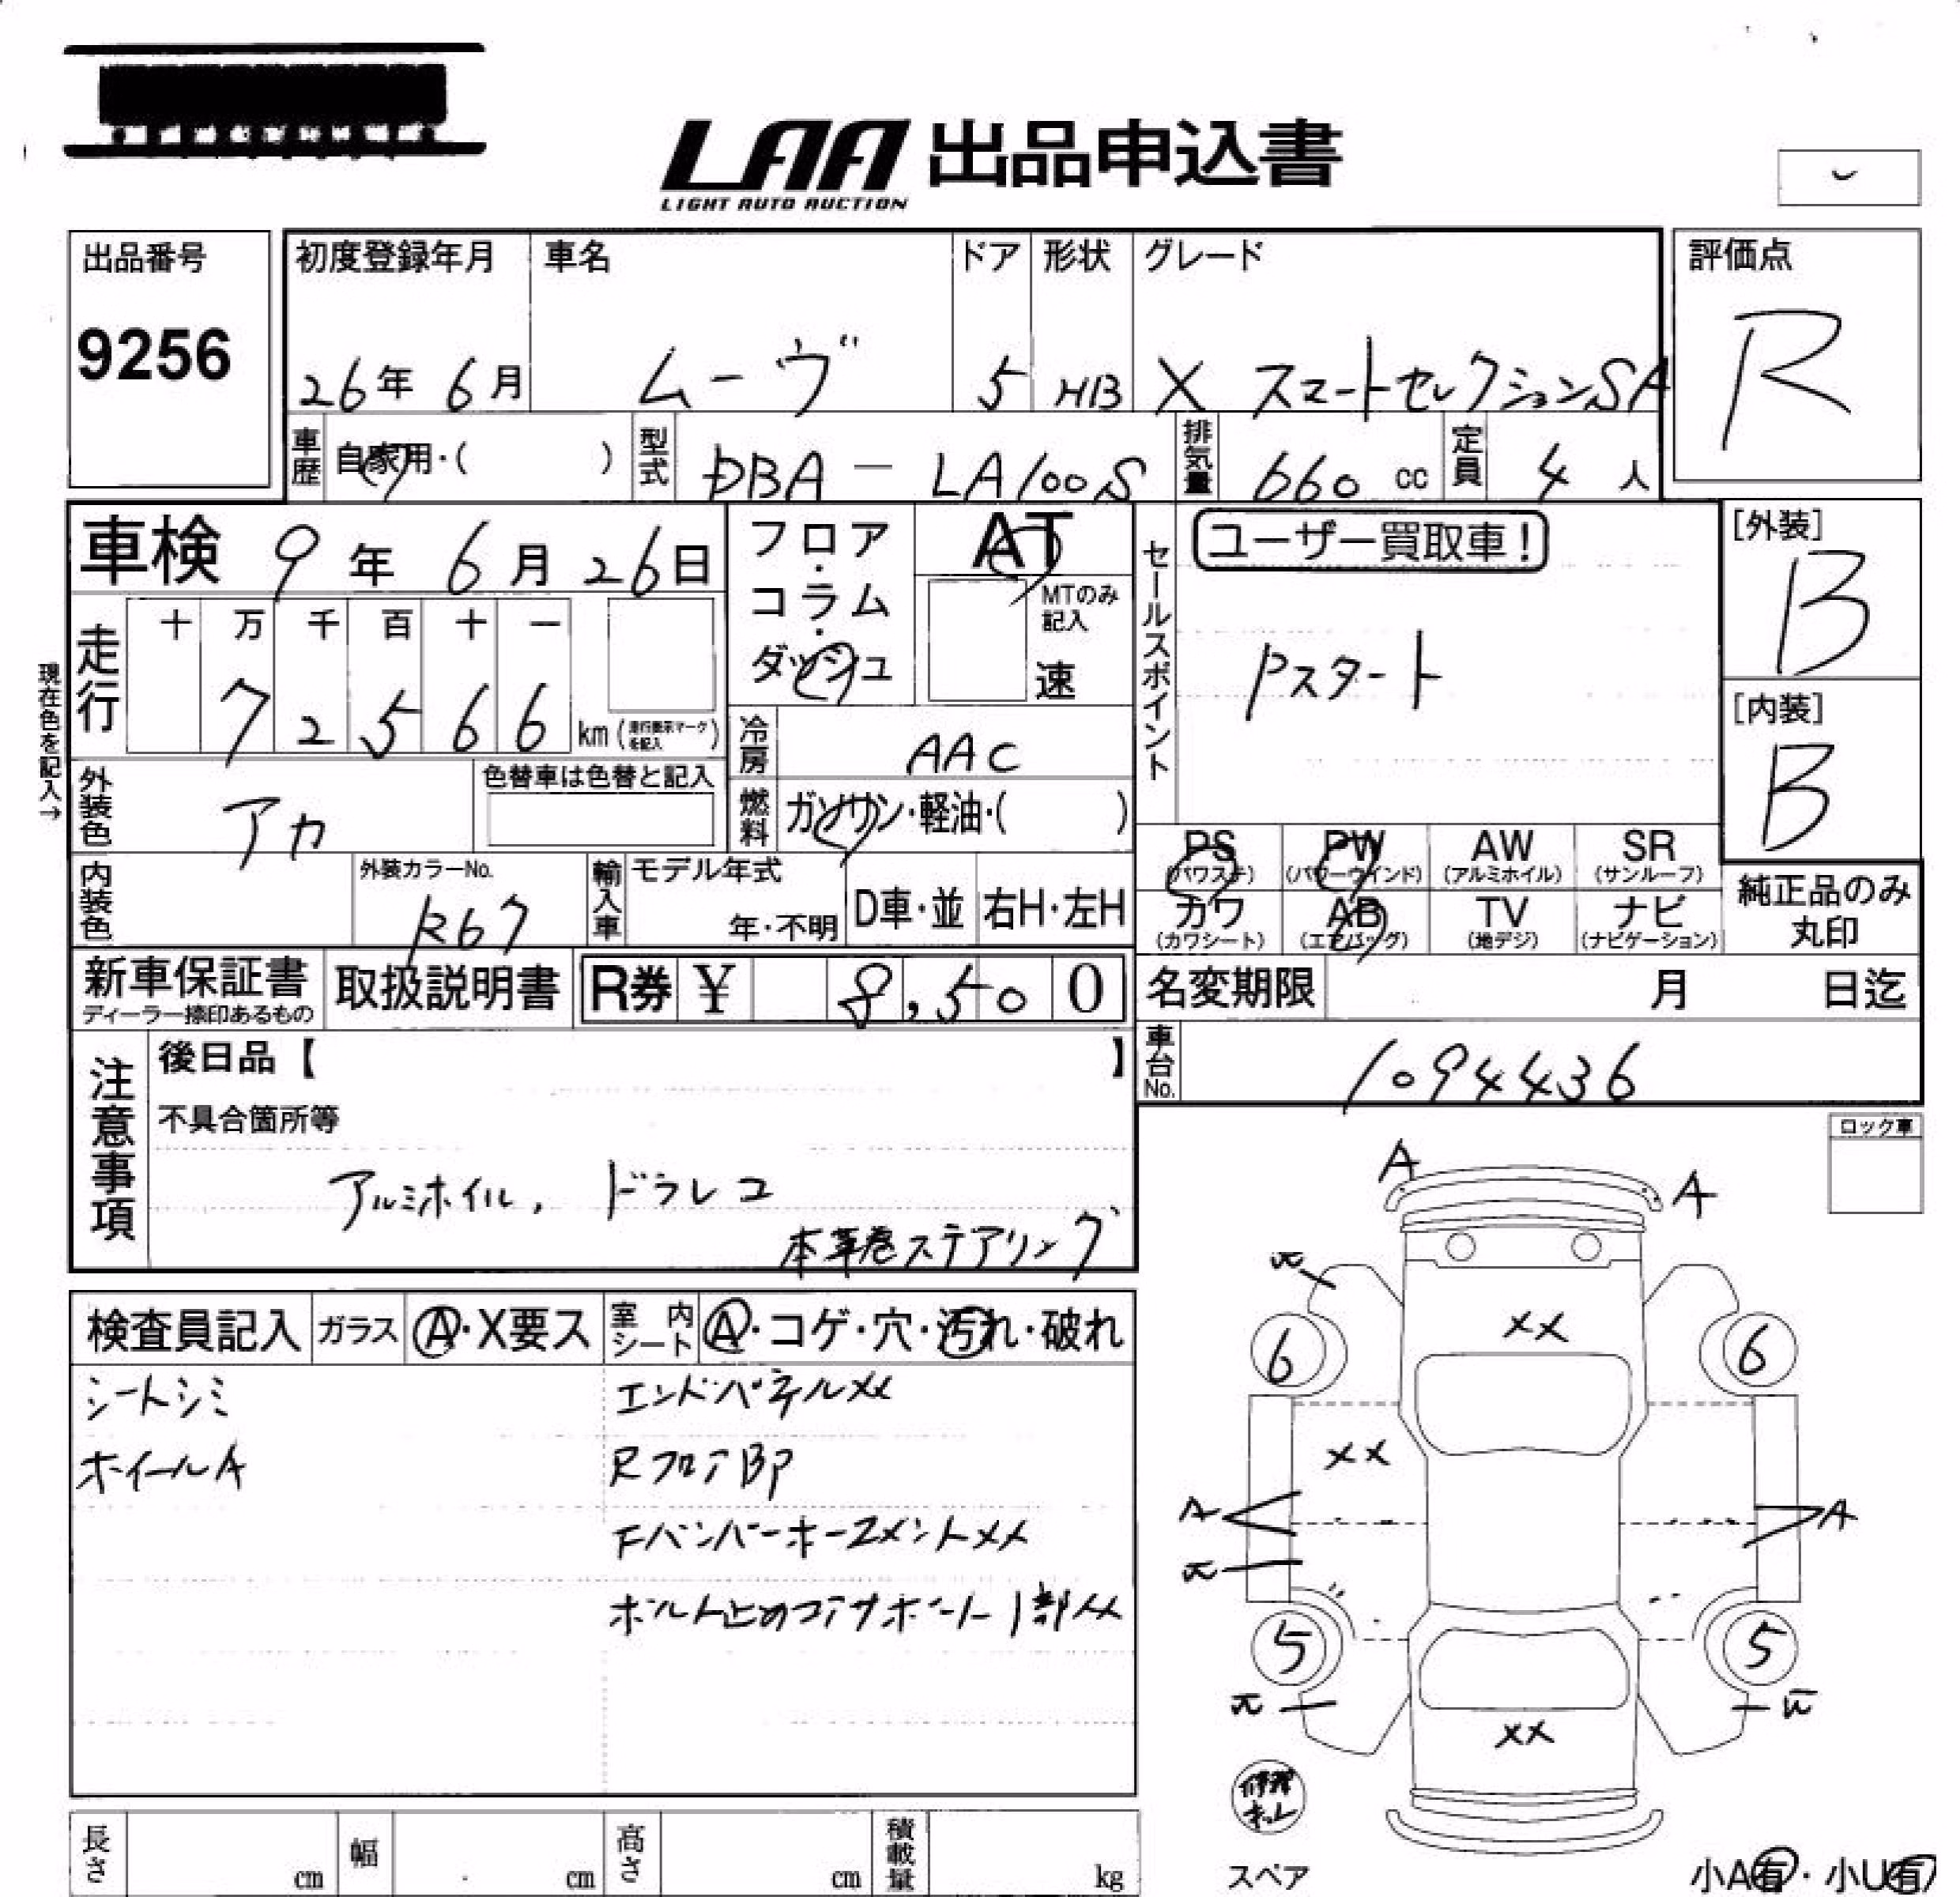 LAA 出品申込書
LIGHT AUTO AUCTION
出品番号
9256
初度登録年月
26年 6月
車名
ムーヴ
ドア
5
形状
HB
グレード
X スマートセレクションSA
評価点
R
車歴
自家用・( )
型式
DBA - LA100S
排気量
660 cc
定員
4 人
車検 9年 6月 26日
フロア・コラム・ダッシュ
AT
MTのみ記入
速
セールスポイント
ユーザー買取車!
Pスタート
[外装]
B
[内装]
B
現在色を記入→
走行
十 万 千 百 十 一
7 2 5 6 6 km (走行表示マークを記入)
冷房
AAC
外装色
アカ
色替車は色替と記入
燃料
ガソリン・軽油・( )
内装色
外装カラーNo.
R67
輸入車
モデル年式
年・不明
D車・並
右H・左H
PS (パワステ)
PW (パワーウインド)
AW (アルミホイル)
SR (サンルーフ)
カワ (カワシート)
AB (エアバッグ)
TV (地デジ)
ナビ (ナビゲーション)
純正品のみ丸印
新車保証書
ディーラー捺印あるもの
取扱説明書
R券 ¥ 8,500
名変期限 月 日迄
車台No.
1094436
注意事項
後日品【 】
不具合箇所等
アルミホイル, ドラレコ
本革巻ステアリング
ロック車
検査員記入
ガラス
A・X要ス
室内シート
A・コゲ・穴・汚れ・破れ
シートシミ
エンドパネルXX
ホイールA
RフロアBP
FバンパーホースメントXX
ボルト止めコアサポート1部XX
A
A
XX
6
6
XX
A
A
5
5
XX
スペア
小A有・小U有
長さ cm
幅 cm
高さ cm
積載量 kg